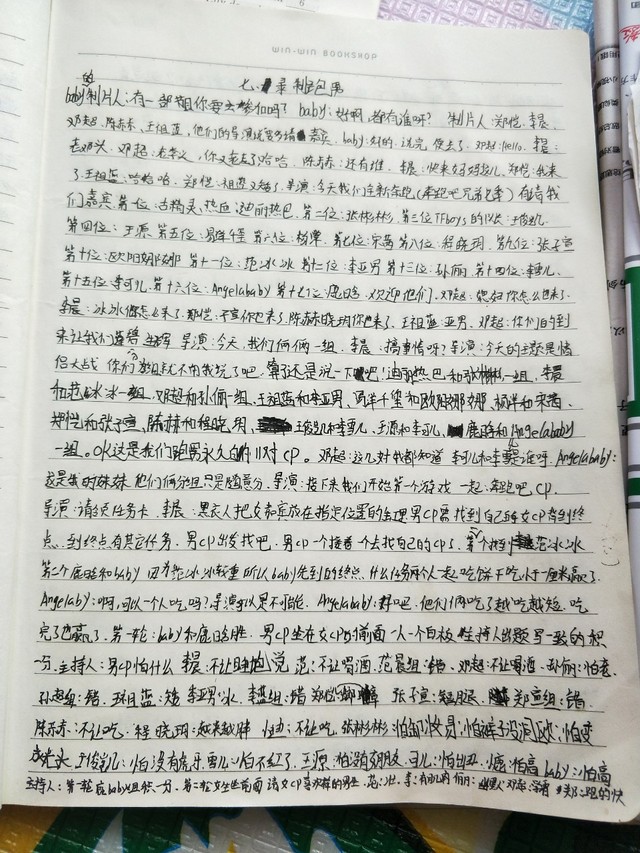 WIN-WIN BOOKSHOP
七、录制跑男
的
baby制片人:有一部戏你要去参加吗? baby:好啊,都有谁呀? 制片人:郑恺、李晨、
邓超、陈赫、王祖蓝,他们的导演说要多请嘉宾。baby:好的,说完便去了。邓超:hello。李晨:
去邓头。邓超:去李头,你又老去了哈哈。陈赫:还有谁。李晨:快来好妈媳儿。郑恺:我来
了王祖蓝:哈哈哈。郑恺:祖蓝又矮了。导演:今天我们全新东跑(奔跑吧兄弟七季)有请我
们嘉宾第一位:古精灵,热血,迪丽热巴。第二位:张彬彬。第三位TFboys的队长:王俊凯
第四位:王源 第五位:易烊千玺 第六位:杨洋 第七位:宋茜 第八位:程晓玥 第九位:张子萱
第十位:欧阳娜娜 第十一位:范冰冰 第十二位:李亚男 第十三位:孙俪。第十四位:李雪儿。
第十五位李可儿。第十六位:Angelababy 第十七位:鹿晗。欢迎他们。邓超:媳妇你怎么也来了。
李晨:冰冰你怎么来了。郑恺:子萱你也来了。陈赫:晓玥你也来了。王祖蓝:亚男。邓超:你们的到
来让我们蓬荜生辉 导演:今天,我们俩俩一组。李晨:搞事情呀? 导演:今天的主题是情
侣大战 你们分组就不用我说了吧。算了还是说一下吧! 迪丽热巴和张彬彬一组,李晨
和范冰冰一组。邓超和孙俪一组、王祖蓝和李亚男、易烊千玺和欧阳娜娜、杨洋和宋茜、
郑恺和张子萱、陈赫和程晓玥、王俊凯和李雪儿、王源和李可儿、鹿晗和Angelababy
一组。OK这是我们跑男永久的11对CP。邓超:这几对我都知道 李可儿和李雪儿是谁呀。Angelababy:
这是我的妹妹 他们俩分组只是随意分。导演:接下来我们开始第一个游戏 一起:奔跑吧,CP。
导演:请念任务卡。李晨:黑衣人把女嘉宾放在指定位置的各地 男CP需找到自己的女CP带到终
点。到终点有其它任务。男CP出发找吧。男CP一个接着一个去找自己的CP了。第一个找到范冰冰
第二个鹿晗和baby 因为范冰冰较重 所以baby先到的终点。什么任务两个人一起吃饼干吃小于一厘米赢了。
Angelababy:啊,可以一个人吃吗?导演:可以是不可能。Angelababy:好吧。他们俩吃了越吃越短。吃
完了也赢了。第一轮:baby和鹿晗胜。男CP坐在女CP的前面 一人一个白板 主持人出题写一致的积
一分。主持人:男CP怕什么 李晨:不让 范:不让喝酒。范晨组:错。邓超:不让喝酒。孙俪:怕老。
孙超组:错。王祖蓝:矮 李亚男:小。李蓝组:错 张子萱:短腿。郑萱组:错。
陈赫:不让吃。程晓玥:越来越胖 不让吃。张彬彬:
王俊凯:怕没有虎牙 雪儿:怕不红了。王源:怕没有朋友。可儿:怕出丑。鹿:怕高 baby:怕高
主持人:第一轮鹿baby组积一分。第二轮女生坐前面 请女CP喜欢啥样的男生。范:壮。李:有肌肉